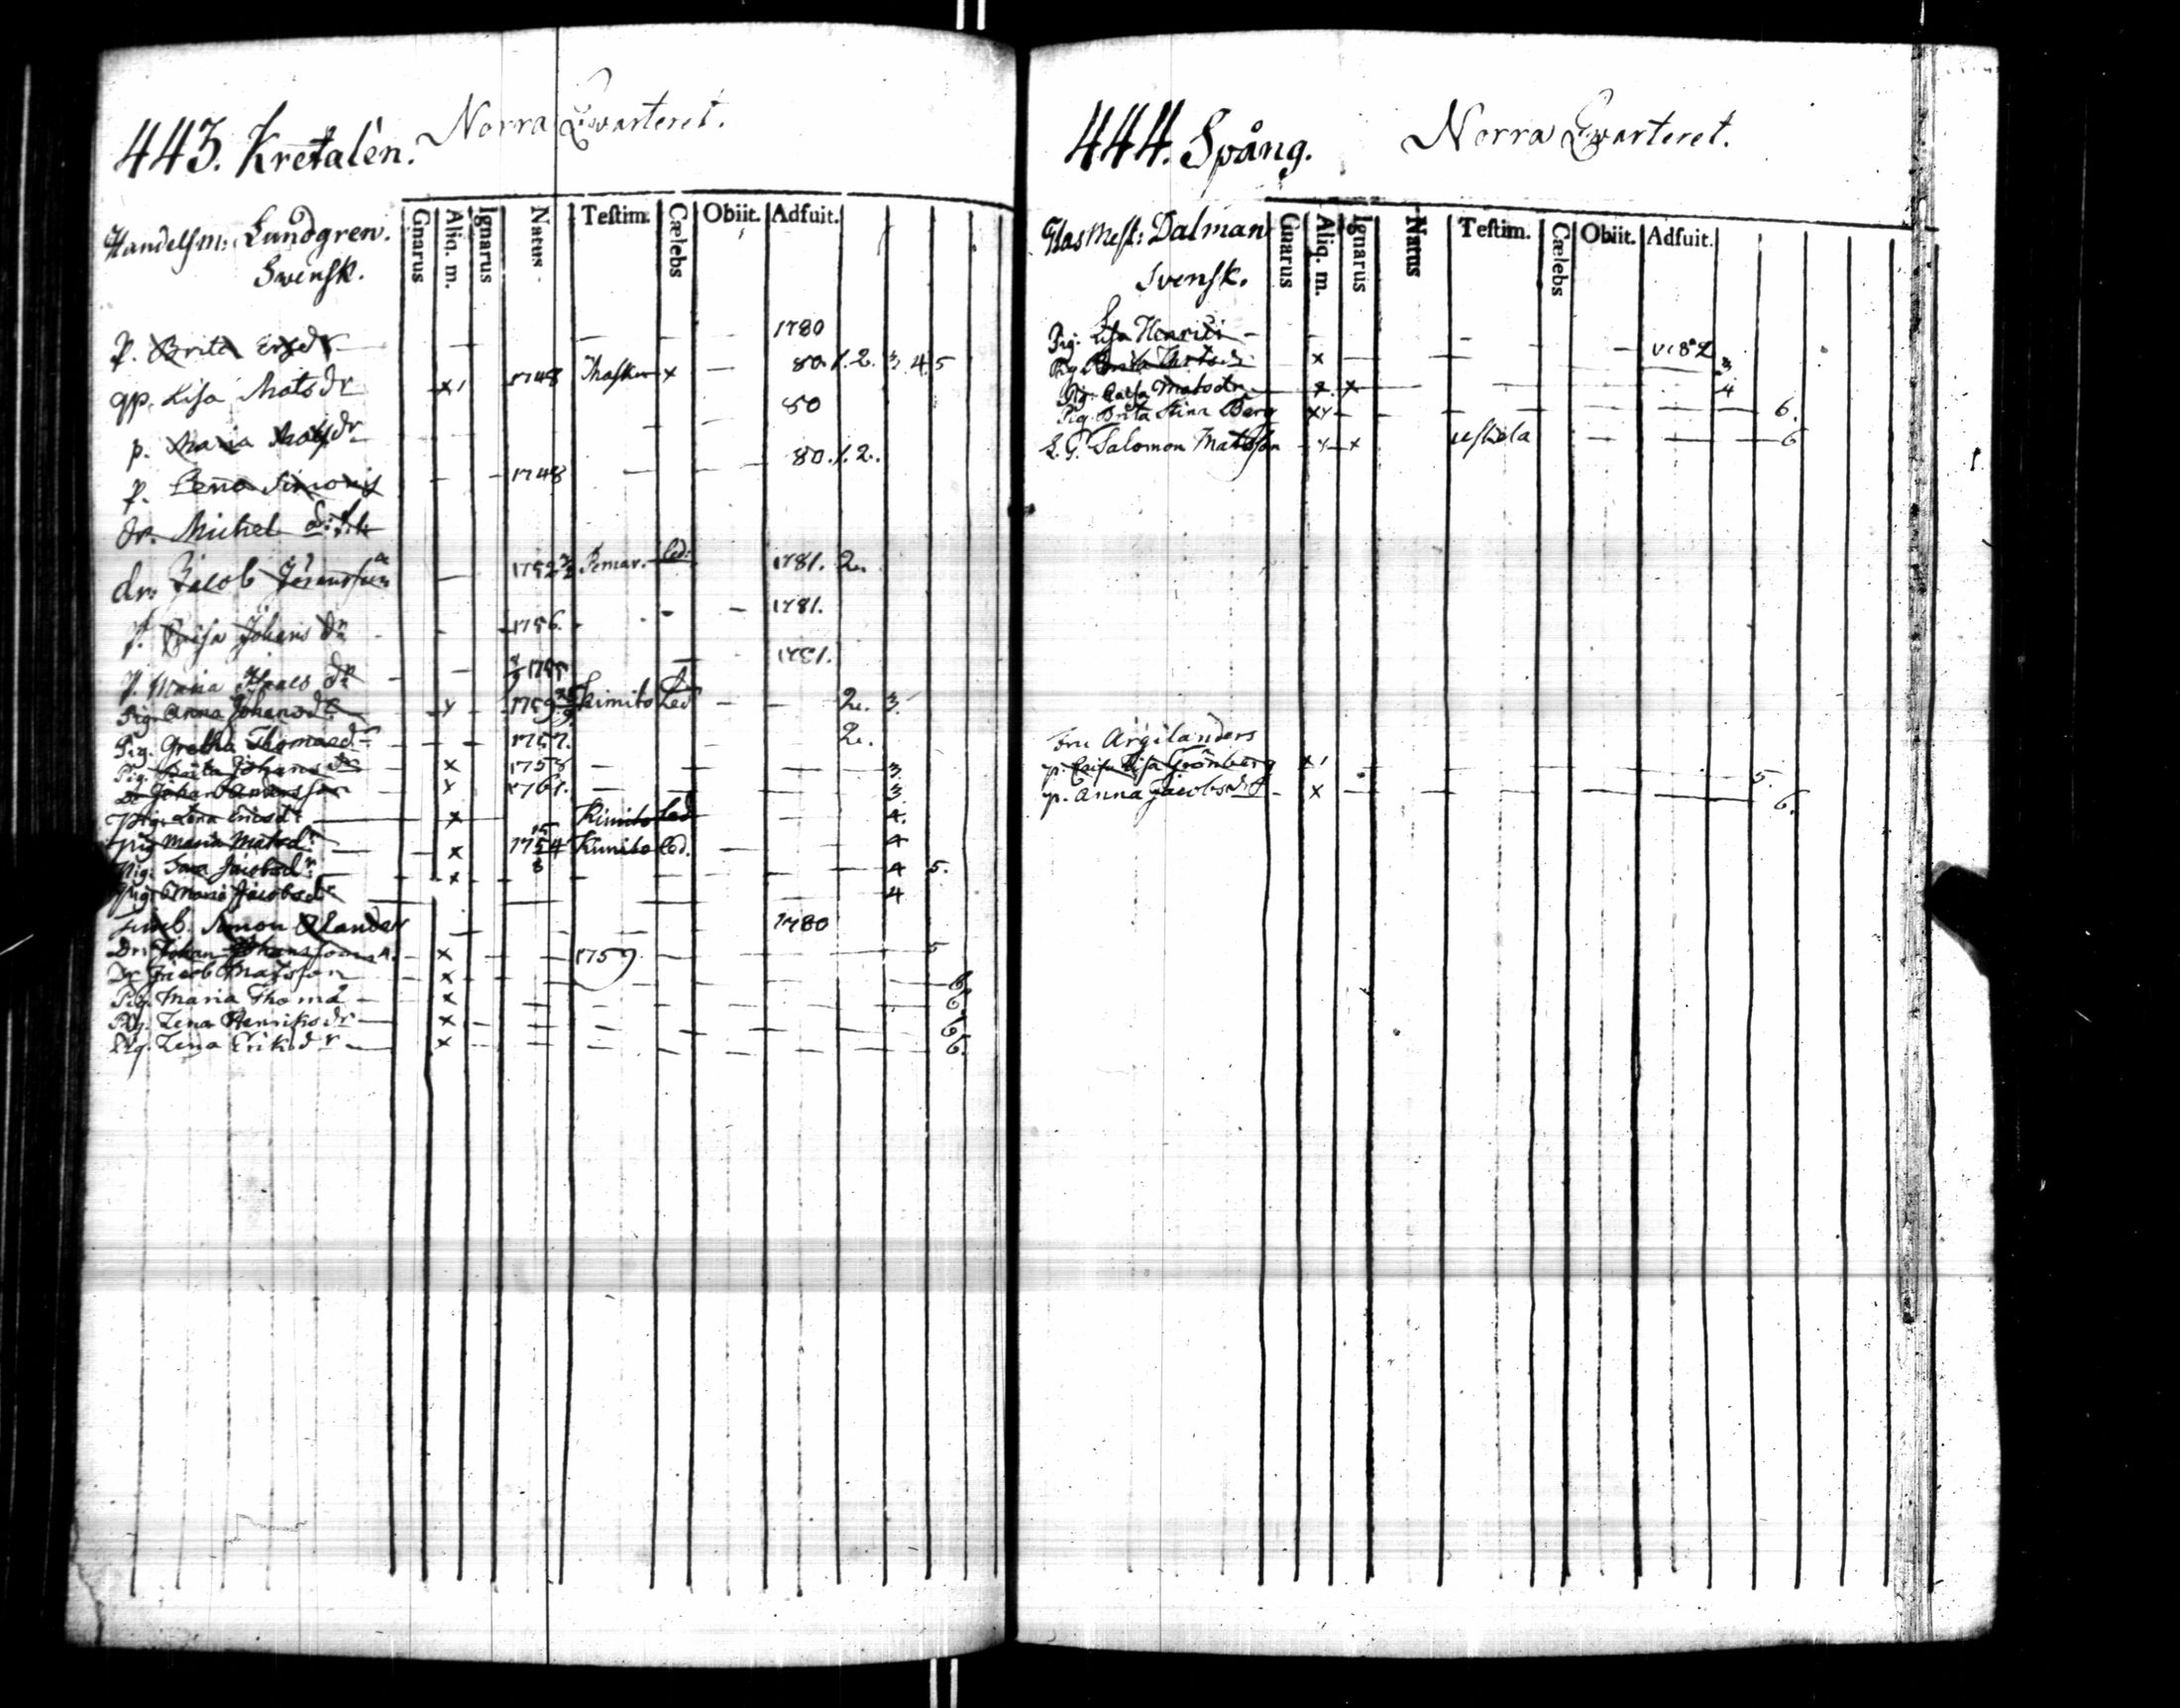 443. Kretalen. Norra Qvarteret.
Handelsm: Lundgren.
Swensk.
Gnarus Aliq. m. Ignarus Natus Testim. Cælebs Obiit. Adfuit.
p. Brita Ersdr 1780
gp. Lisa Matsdr x 1748 x 80. 1. 2. 3. 4. 5
p. Maria Matsdr 80
p. Lena Simonis 1748 80. 1. 2.
dr. Michel
dr. Jacob 1752 Pemar. led: 1781. 2.
p. Johans dr 1756. 1781.
p. Maria Isaacs dr 1755 1781.
Pig. Anna Johansdr x 1759 Kimito Led 2. 3.
Pig. Gretha Thomasdr 1757. 2.
Pig. Brita Johansdr x 1758 3.
Dr Johan x 1761. 3.
Pig. Lena Ericsdr x Kimito led 4.
Pig Maria Matsdr x 1754 Kimito led. 4
Pig. Jacobsdr x 4 5.
Pig. Maria Jacobsdr 4
Simon Olander 1780
Dr. Johan Johansson x 1759 5
Dr Jacob Matsson x 6.
Pig. Maria Thomd x 6.
Pig. Lena Henriksdr x 6.
Pig. Lena Eriksdr x 6.
444. Spång. Norra Qvarteret.
Glasmest: Dalman
Svensk.
Gnarus Aliq. m. Ignarus Natus Testim. Cælebs Obiit. Adfuit.
Pig. Lisa Henrici
Pig. Brita x 3
Pig. Caisa Matsdr x x 4
Pig. Brita Stina Berg xx 6.
L. G. Salomon Matsson x x 6
Fru Argilanders
p. Caisa Lisa Grönberg x 5.
p. Anna Jacobsdr x 6.